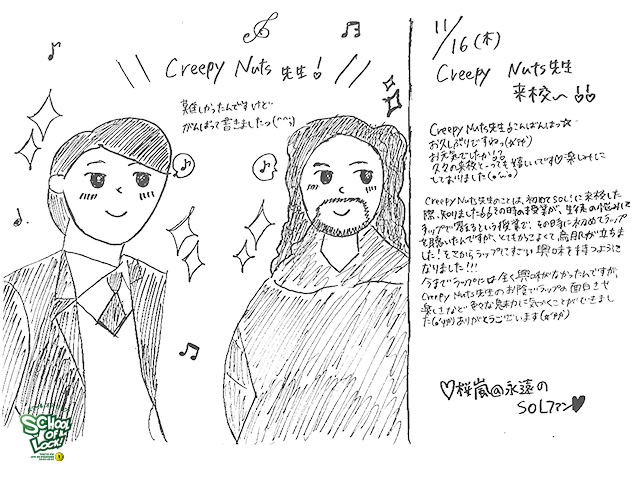 Creepy Nuts 先生!
難しかったんですけど
がんばって書きましたっ(^^;)
11/16(木)
Creepy Nuts 先生
来校〜!!
Creepy Nuts先生♪こんばんはっ☆
お久しぶりですねっ
お元気でしたか??
久々の来校とっても嬉しいです♡楽しみに
しておりました
Creepy Nuts先生のことは、初めてSOL!に来校した
際、知りました!その時の授業が、生徒の悩みに
ラップで答えるという授業で、その時に初めてラップ
を聴いたんですが、とてもかっこよくて、鳥肌が立ちま
した!そこからラップにすごい興味を持つように
なりました!!!
今までラップには全く興味がなかったんですが、
Creepy Nuts先生のお陰でラップの面白さや
楽しさなど、色々な魅力に気づくことができまし
たありがとうございます
♡桜嵐@永遠の
SOLファン♥
SCHOOL
OF
LOCK!